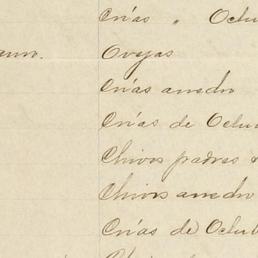 Crías " Octu
Ovejas
Crías amedro
Crías de Octu
Chivos padres
Chivos amedro
Crías de Octub